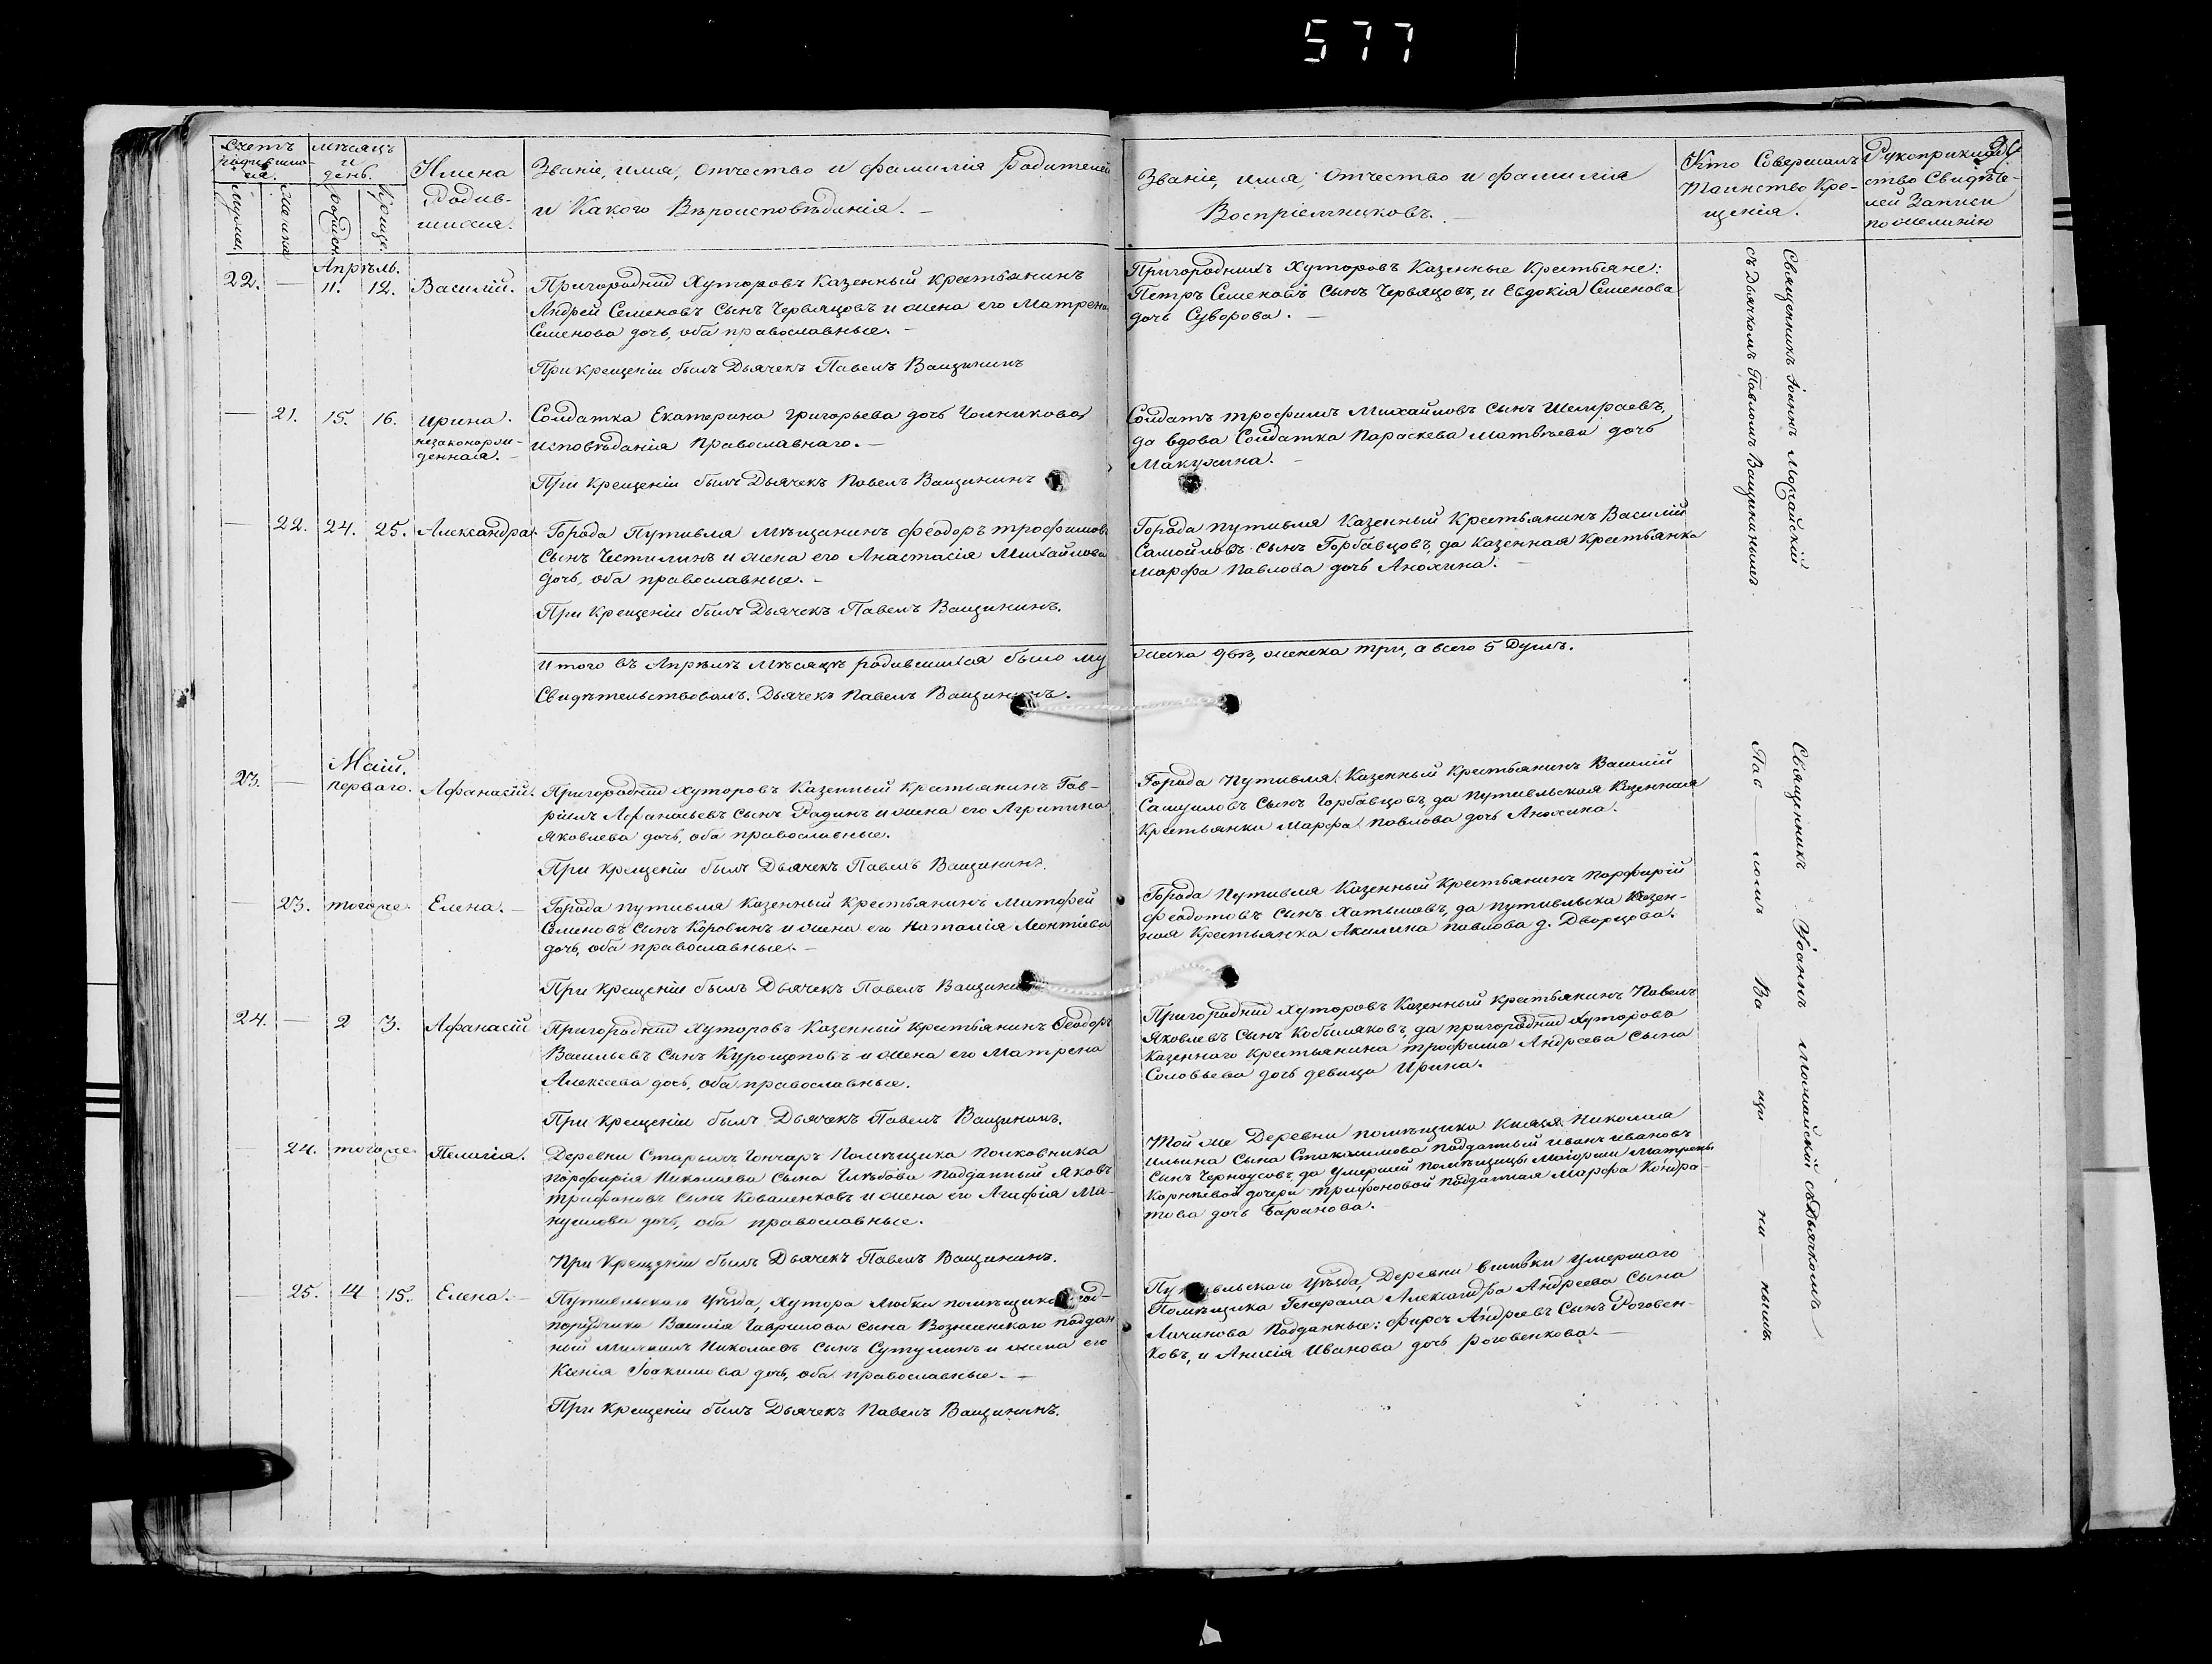 577
Счетъ родившихся.
мѣсяцъ и день.
Имена Родившихся.
Званіе, имя, отчество и фамилія Родителей
и Какого Вѣроисповѣданія. –
Званіе, имя, отчество и фамилія
Воспріемниковъ. –
Кто Совершалъ
Таинство Крещенія.
ство Свидѣте-
лей Записи
по желанію
Апрѣль.
22. – 11. 12. Василій.
Пригородныхъ Хуторовъ Казенный крестьянинъ
Андрей Семеновъ Сынъ Червяцовъ и жена его Матрена
Семенова дочь, оба православные. –
При крещеніи былъ Дьячекъ Павелъ Ващининъ
Пригородныхъ Хуторовъ Казенные Крестьяне:
Петръ Семеновъ Сынъ Червяцовъ, и Евдокія Семенова
дочь Суворова. –
Священникъ Іоаннъ Можайскій
съ Дьячкомъ Павломъ Ващининымъ
– 21. 15. 16. Ирина.
незаконорож-
денная. –
Солдатка Екатерина Григорьева дочь
исповѣданія Православнаго. –
При Крещеніи былъ Дьячекъ Павелъ Ващининъ
Солдатъ Трофимъ Михайловъ Сынъ
да вдова Солдатка Параскева Матвѣева дочь
Макухина. –
– 22. 24. 25. Александра.
Города Путивля Мѣщанинъ Феодоръ Трофимовъ
Сынъ Чистилинъ и жена его Анастасія Михайлова
дочь, оба православные. –
При Крещеніи былъ Дьячекъ Павелъ Ващининъ.
Города Путивля Казенный Крестьянинъ Василій
Самойловъ Сынъ Горбавцовъ, да Казенная Крестьянка
Марфа Павлова дочь Анохина. –
Итого въ Апрѣлѣ Мѣсяцѣ родившихся было му
жеска два, женска три, а всего 5 Душъ.
Свидѣтельствовалъ. Дьячекъ Павелъ Ващининъ.
Маій.
23. – перваго. Афанасій.
Пригородныхъ Хуторовъ Казенный Крестьянинъ Гав-
ріилъ Афанасьевъ Сынъ Радинъ и жена его Агрипина
Яковлева дочь, оба православные.
При крещеніи былъ Дьячекъ Павелъ Ващининъ.
Города Путивля Казенный Крестьянинъ Василій
Самуиловъ Сынъ Горбавцовъ, да Путивльская Казенная
Крестьянка Марфа Павлова дочь Анохина.
Священникъ Іоаннъ Можайскій съ Дьячкомъ
Пав ломъ Ва — щи — ни — нымъ.
– 23. тогоже. Елена. –
Города Путивля Казенный Крестьянинъ
Семеновъ Сынъ Коровинъ и жена его Наталія Леонтіева
дочь, оба православные. –
При Крещеніи былъ Дьячекъ Павелъ Ващини
Города Путивля Казенный Крестьянинъ Порфирій
Феодотовъ Сынъ Хатышовъ, да Путивльска Казен-
ная Крестьянка Акилина Павлова д. Дворцова.
24. – 2 3. Афанасій
Пригородныхъ Хуторовъ Казенный Крестьянинъ Феодоръ
Васильевъ Сынъ Курощоповъ и жена его Матрена
Алексѣева дочь, оба православные.
При крещеніи былъ Дьячекъ Павелъ Ващининъ.
Пригородныхъ Хуторовъ Казенный Крестьянинъ Павелъ
Яковлевъ Сынъ Кобыляковъ, да пригородныхъ Хуторовъ
Казеннаго Крестьянина Трофима Андреева Сына
Соловьева дочь девица Ирина.
– 24. тогоже. Пелагія.
Деревни Старыхъ Гончаръ Помѣщика Полковника
Порфирія Николаева Сына Глѣбова Подданный Яковъ
Трифоновъ Сынъ Коваленковъ и жена его Агафія Ма-
нуилова дочь, оба православные.
При Крещеніи былъ Дьячекъ Павелъ Ващининъ.
Той же Деревни помѣщика Князя Николая
Ильина Сына Подданный Иванъ Ивановъ
Сынъ Черноусовъ, да умершей помѣщицы Маіорши Матрены
Корнѣевой дочери Трифоновой Подданная Марфа Кондра-
това дочь Баранова. –
– 25. 14 15. Елена. –
Путивльскаго Уѣзда, Хутора Любки помѣщика Под-
порутчика Василія Гаврилова Сына Вознесенскаго поддан
ный Михаилъ Николаевъ Сынъ Сутулинъ и жена его
Ксенія Іоакимова дочь, оба православные. –
При Крещеніи былъ Дьячекъ Павелъ Ващининъ.
Путивльскаго Уѣзда, Деревни умершаго
Помѣщика Генерала Александра Андреева Сына
Подданные: Фирсъ Андреевъ Сынъ Роговен-
ковъ, и Анисія Иванова дочь Роговенкова. –